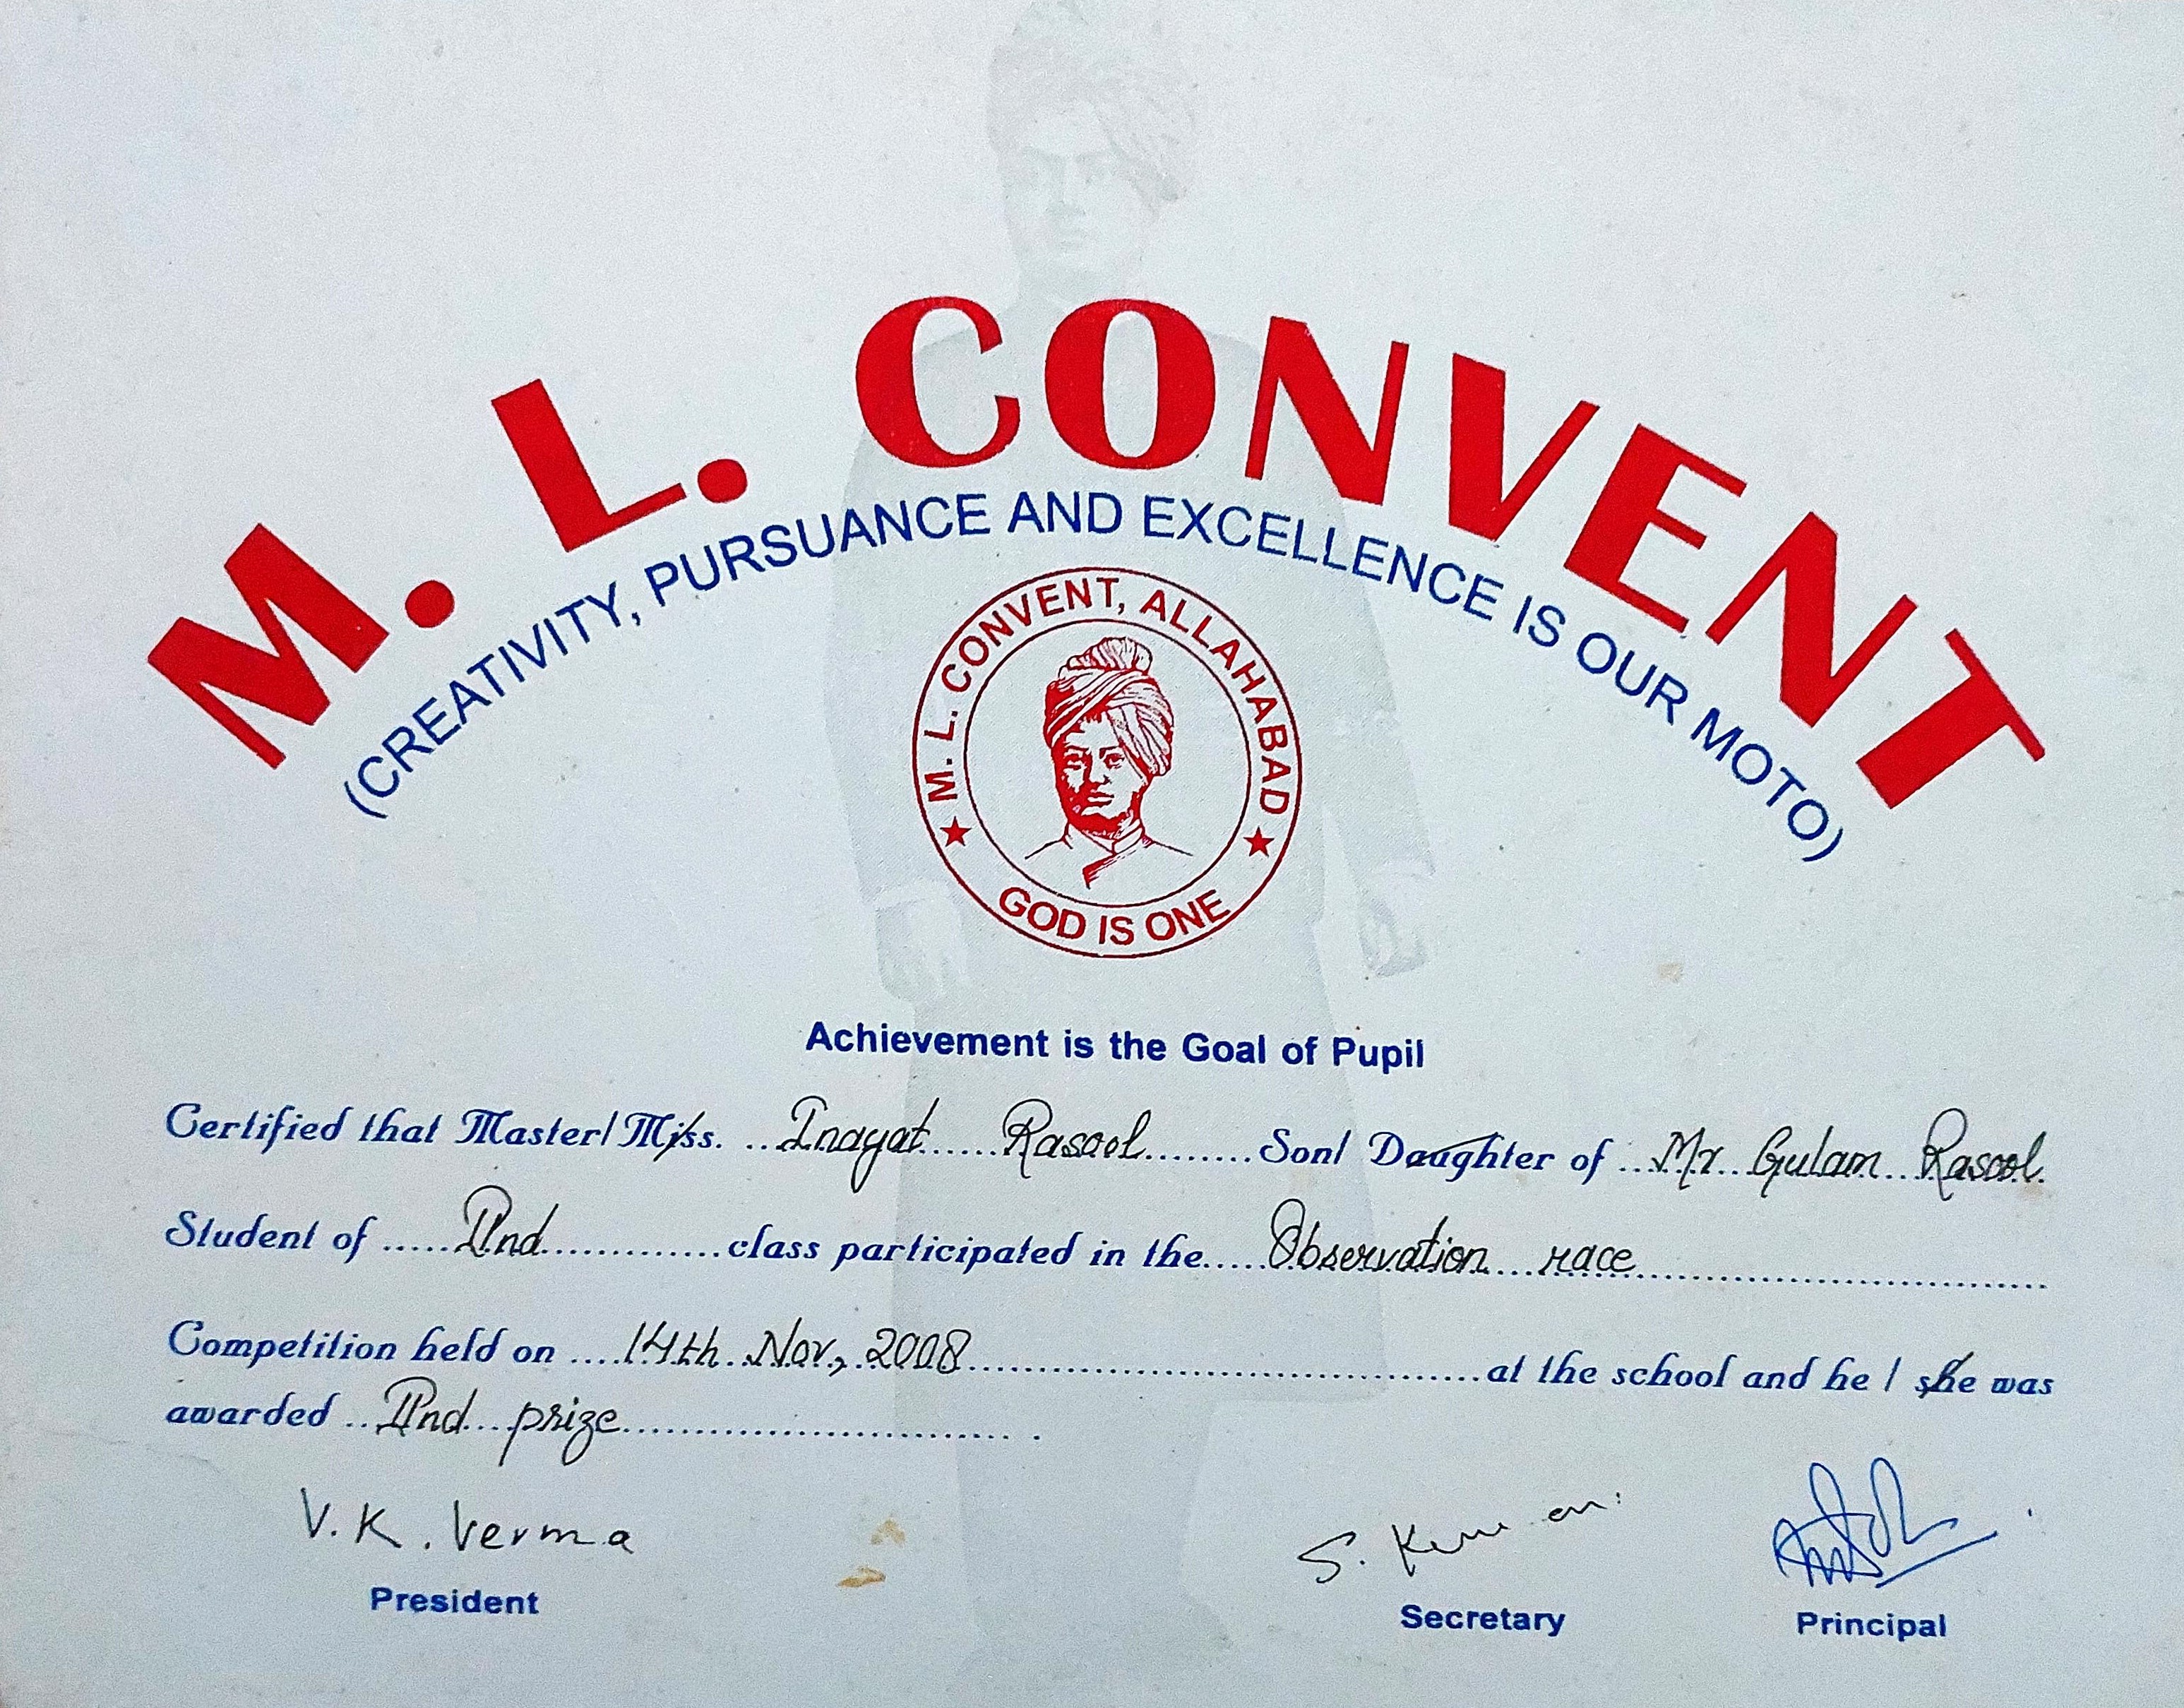 M. L. CONVENT
(CREATIVITY, PURSUANCE AND EXCELLENCE IS OUR MOTO)
M. L. CONVENT, ALLAHABAD
GOD IS ONE
Achievement is the Goal of Pupil
Certified that Master/ Miss. Inayat Rasool Son/ Daughter of Mr Gulam Rasool
Student of IInd class participated in the Observation race
Competition held on 14th Nov, 2008 at the school and he / she was
awarded IInd prize
V. K. Verma
S.
President Secretary Principal